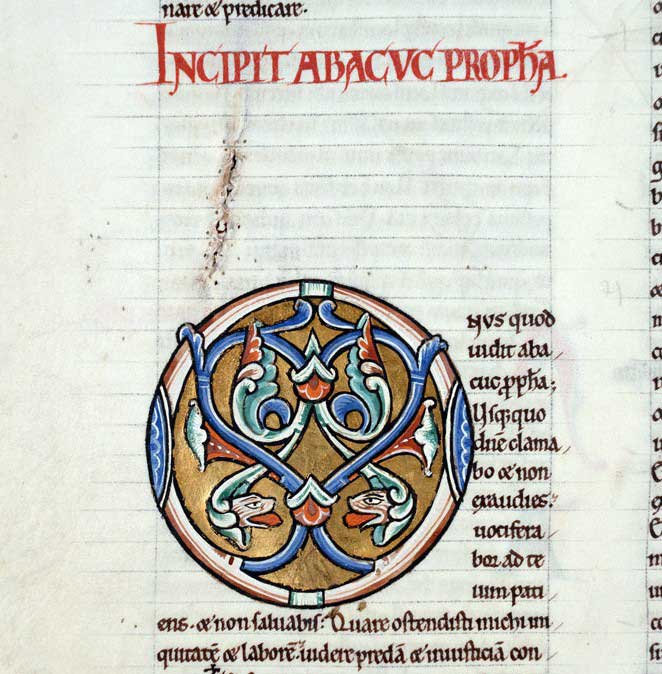 nare & predicare.
INCIPIT ABACVC PROPħA.
O NVS quod
uidit aba
cuc ꝓpħa;
Vsq; quo
dn̄e clama
bo & non
exaudies.
uocifera
bor ad te
uim pati
ens. & non saluabis? Quare ostendisti michi ini
quitatē & laborē. uidere predā & iniusticiā con